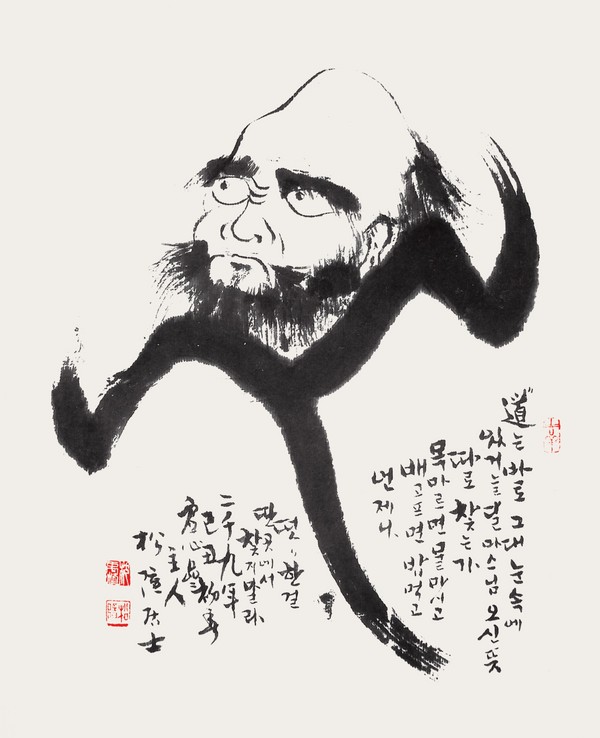 "道"는 바로 그대 눈속에
있거늘 달마스님 오신뜻
따로 찾는가
목마르면 물마시고
배고프면 밥먹고
언제나
떳〃한걸
딴곳에서
찾지말라
二千九年
己丑初春
主人
居士